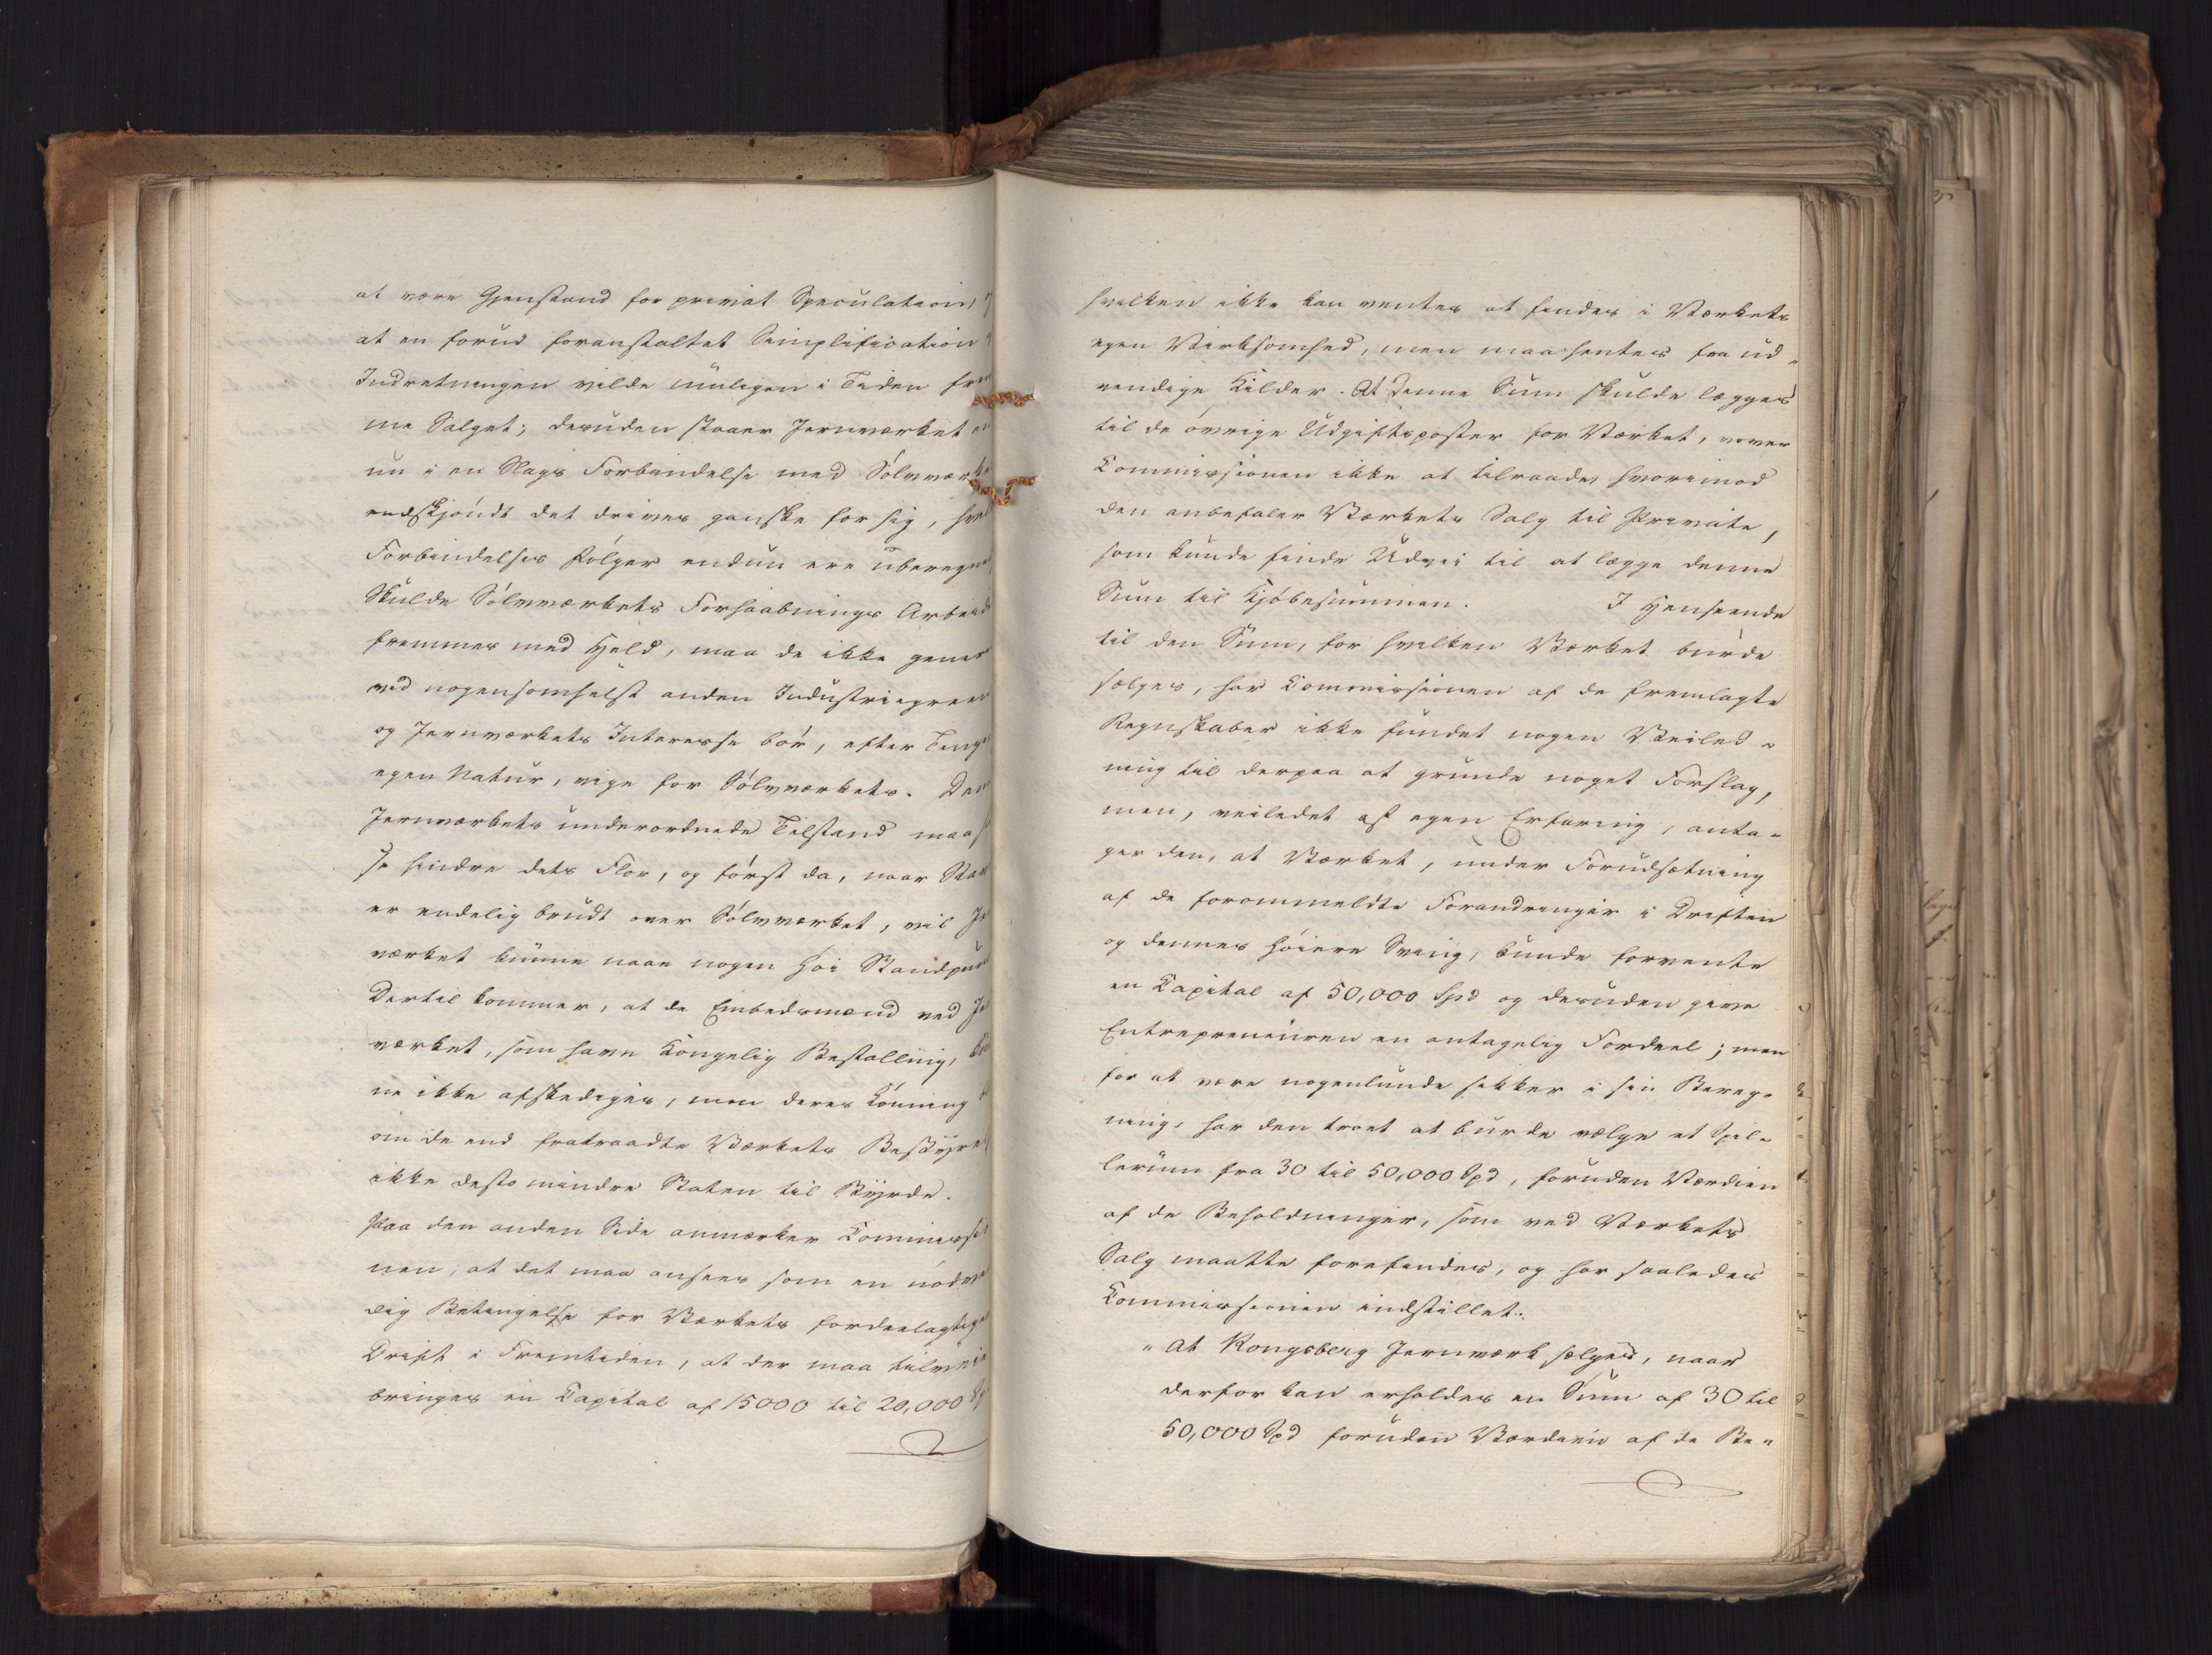 at være Gjenstand for privat Speculation,
at en forud foranstaltet Simplification
Indretningen vilde muligen i Tiden frem
me Salget; desuden staaer Jernværket en
nu i en Slags Forbindelse med Sölvværke
endskjöndt det drives ganske for sig, hvis
Forbindelses Fölger endnu ere uberegne
Skulde Sölvværkets Forhaabnings Arbeide
fremmes med Held, maa de ikke genere
ved nogensomhelst anden Industriegreen
og Jernværkets Interesse bör, efter Tinge
egen Natur, vige for Sölvværkets. Den
Jernværkets underordnede Tilstand maa
se hindre dets Flor, og först da, naar Stav
er endelig brudt over Sölvværket, vil Je
værket kunne naae nogen höi Standpun
Dertil kommer, at de Embedsmænd ved Je
værket, som have Kongelig Bestalling, kun
ne ikke afskediges, men deres Lönning
om de end fratraadte Værkets Bestyre
ikke desto mindre Staten til Byrde.
Paa den anden Side anmærker Commissi
nen, at det maa ansees som en nödven
dig Betingelse for Værkets fordeelagtige
Drift i Fremtiden, at der maa tilveie
bringes en Capital af 15000 til 20,000 Sp
hvilken ikke kan ventes at findes i Værkets
egen Virksomhed, men maa hentes fra ud-
vendige Kilder. At denne Sum skulde lægges
til de övrige Udgiftsposter for Værket, vover
Commissionen ikke at tilraade, hvorimod
den anbefaler Værkets Salg til Private,
som kunde finde Udvei til at lægge denne
Sum til Kjöbesummen. I Henseende
til den Sum, for hvilken Værket burde
sælges, har Commissionen af de fremlagte
Regnskaber ikke fundet nogen Veiled-
ning til derpaa at grunde noget Forslag,
men, veiledet af egen Erfaring, anta-
ger den, at Værket, under Forudsætning
af de forommeldte Forandringer i Driften
og dennes höiere Sving, kunde forrente
en Capital af 50,000 Spd og desuden give
Entrepreneuren en antagelig Fordeel; men
for at være nogenlunde sikker i sin Bereg-
ning, har den troet at burde vælge et Spil-
lerum fra 30 til 50,000 Spd, foruden Værdien
af de Beholdninger, som ved Værkets
Salg maatte forefindes, og har saaledes
Commissionen indstillet:
"At Kongsberg Jernværk sælges, naar
derfor kan erholdes en Sum af 30 til
50,000 Spd foruden Værdien af de Be-